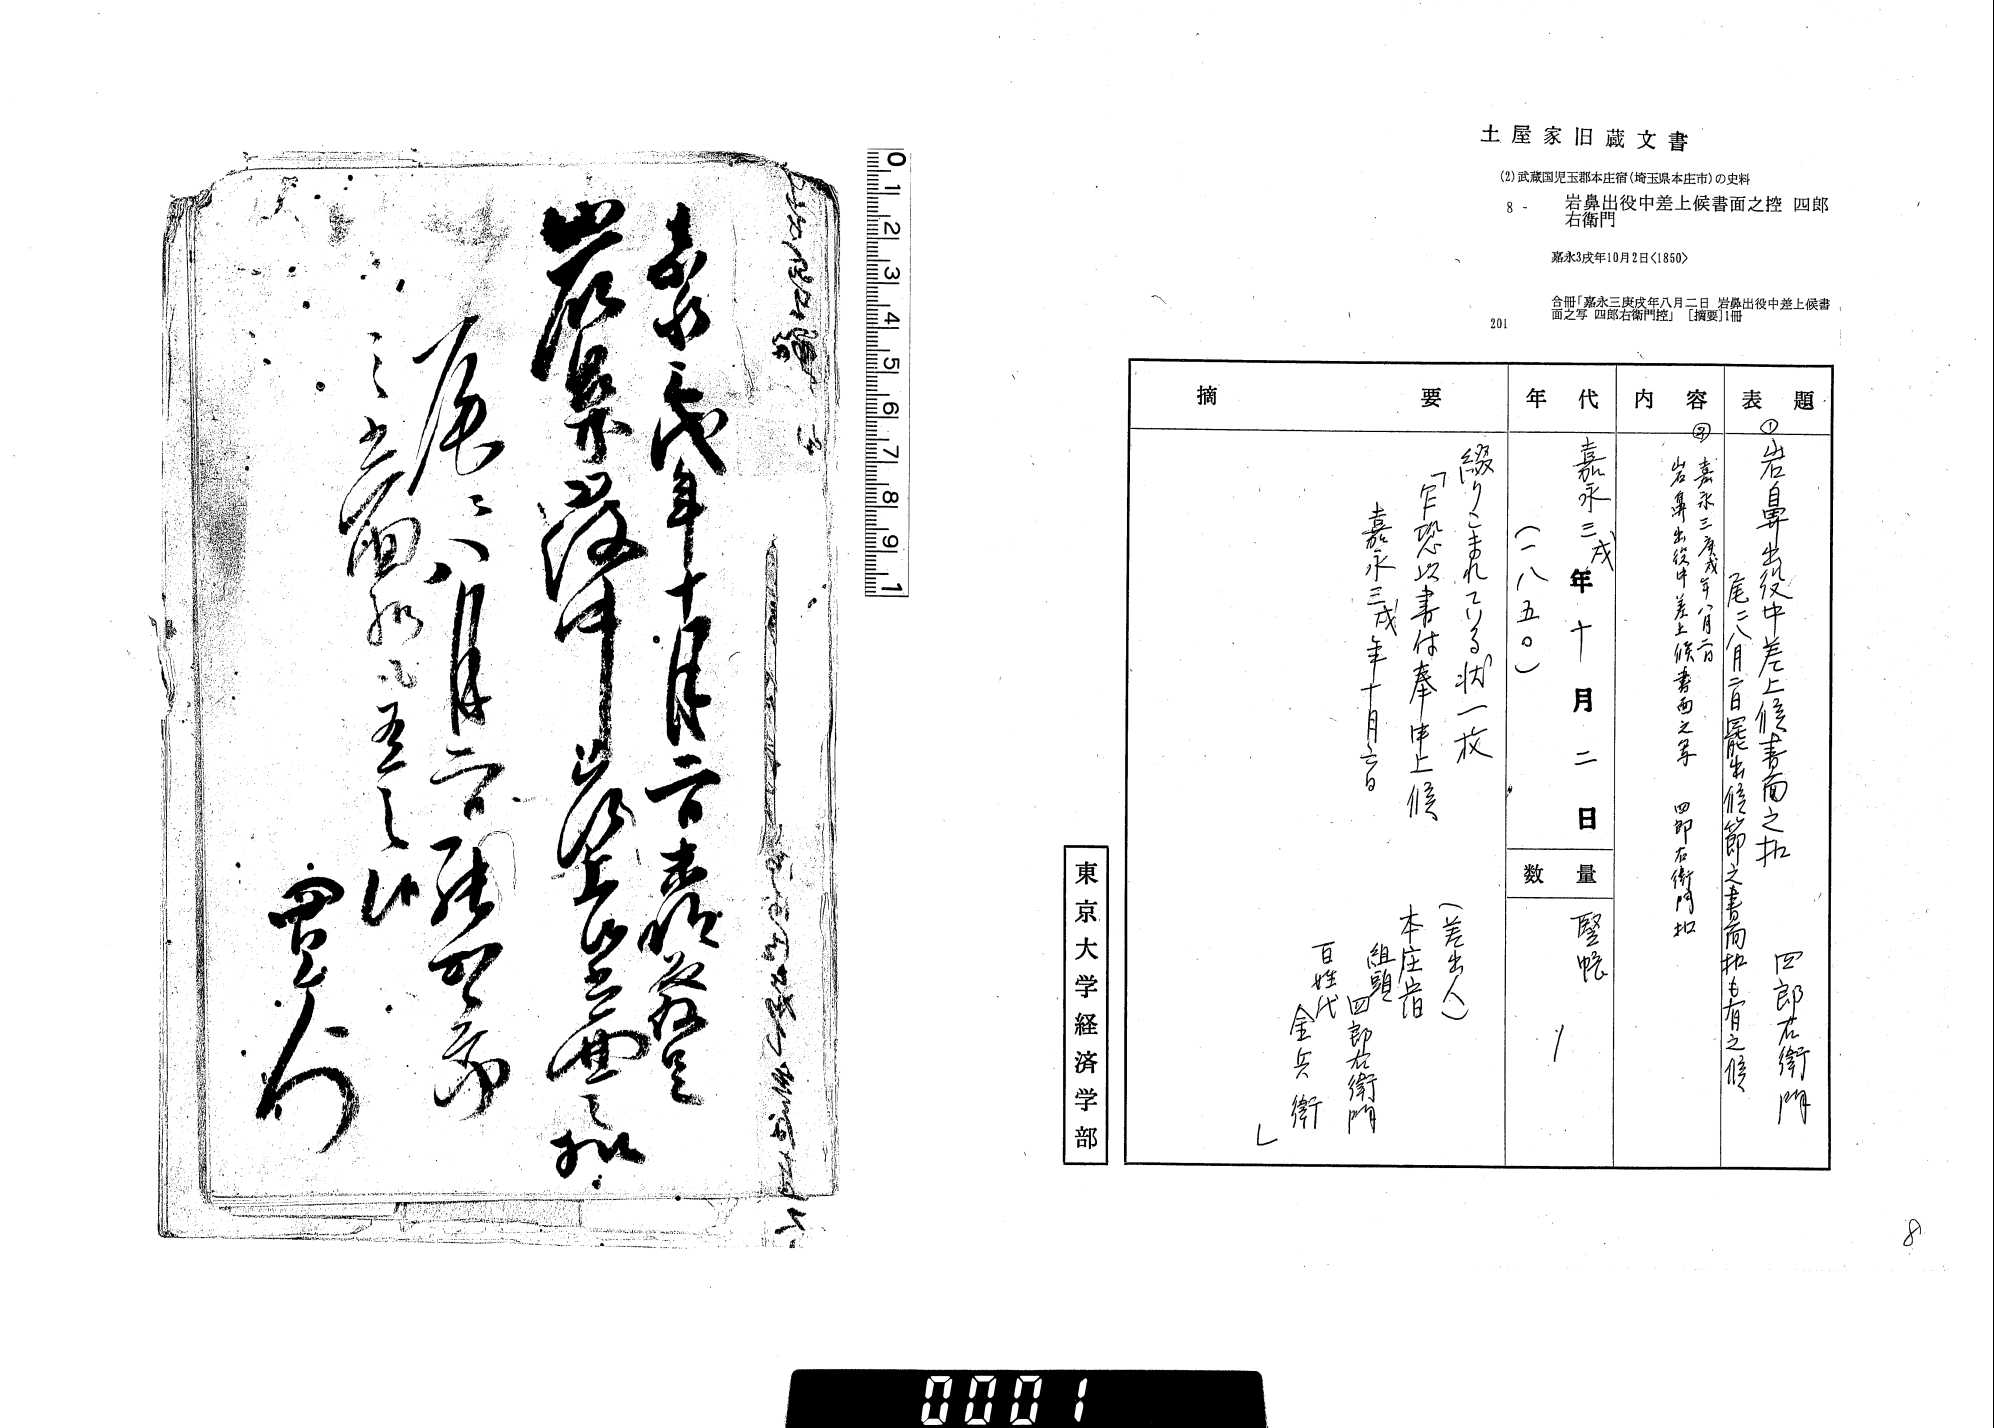 土屋家旧蔵文書
(2)武蔵国児玉郡本庄宿(埼玉県本庄市)の史料
8 - 岩鼻出役中差上候書面之控 四郎
右衛門
嘉永3戌年10月2日<1850>
合冊「嘉永三庚戌年八月二日 岩鼻出役中差上候書
面之写 四郎右衛門控」 [摘要]1冊
201
表題
①岩鼻出役中差上候書面之扣 四郎右衛門
尾ニ八月二日罷出候節之書面扣も有之候
内容
②嘉永三庚戌年八月二日
岩鼻出役中差上候書面之写 四郎右衛門扣
年代
嘉永三戌年十月二日
(一八五〇)
数量
竪帳 1
摘要
綴りこまれている状一枚
「乍恐以書付奉申上候
嘉永三戌年十月六日
(差出人)
本庄宿
組頭
四郎右衛門
百姓代
金兵衛
」
東京大学経済学部
8
0 1 2 3 4 5 6 7 8 9 1
嘉永三戌年十月二日
岩鼻出役中差上候書面之扣
尾ニ八月二日罷出候節
之書面扣も有之候
四郎右衛門
0001